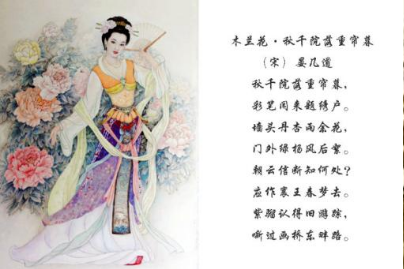 木兰花·秋千院落重帘暮
（宋） 晏几道
秋千院落重帘暮，
彩笔闲来题绣户。
墙头丹杏雨余花，
门外绿杨风后絮。
朝云信断知何处？
应作襄王春梦去。
紫骝认得旧游踪，
嘶过画桥东畔路。